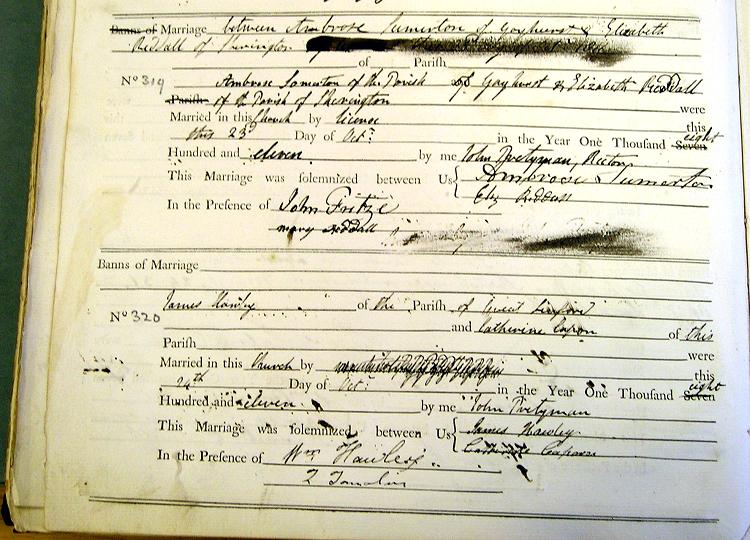 Banns of Marriage between Ambrose Sumerton of Gayhurst & Elizabeth
Reddall of Sherington
of Parish
No 319 Ambrose Somerton of the Parish of Gayhurst & Elizabeth Reddall
Parish of the Parish of Sherington were
Married in this Church by licence this
this 23d Day of Octr. in the Year One Thousand Seven eight
Hundred and eleven by me John Pretyman, Rector
This Marriage was solemnized between Us Ambrose Sumerton
Eliz Reddall
In the Presence of John Fritze
mary reddall
Banns of Marriage
No 320 James Hawley of the Parish of
and Catherine Capon of this
Parish were
Married in this Church by this
24th Day of Octr. in the Year One Thousand Seven eight
Hundred and eleven by me John Pretyman
This Marriage was solemnized between Us James Hawley
Capon
In the Presence of Wm Hawley